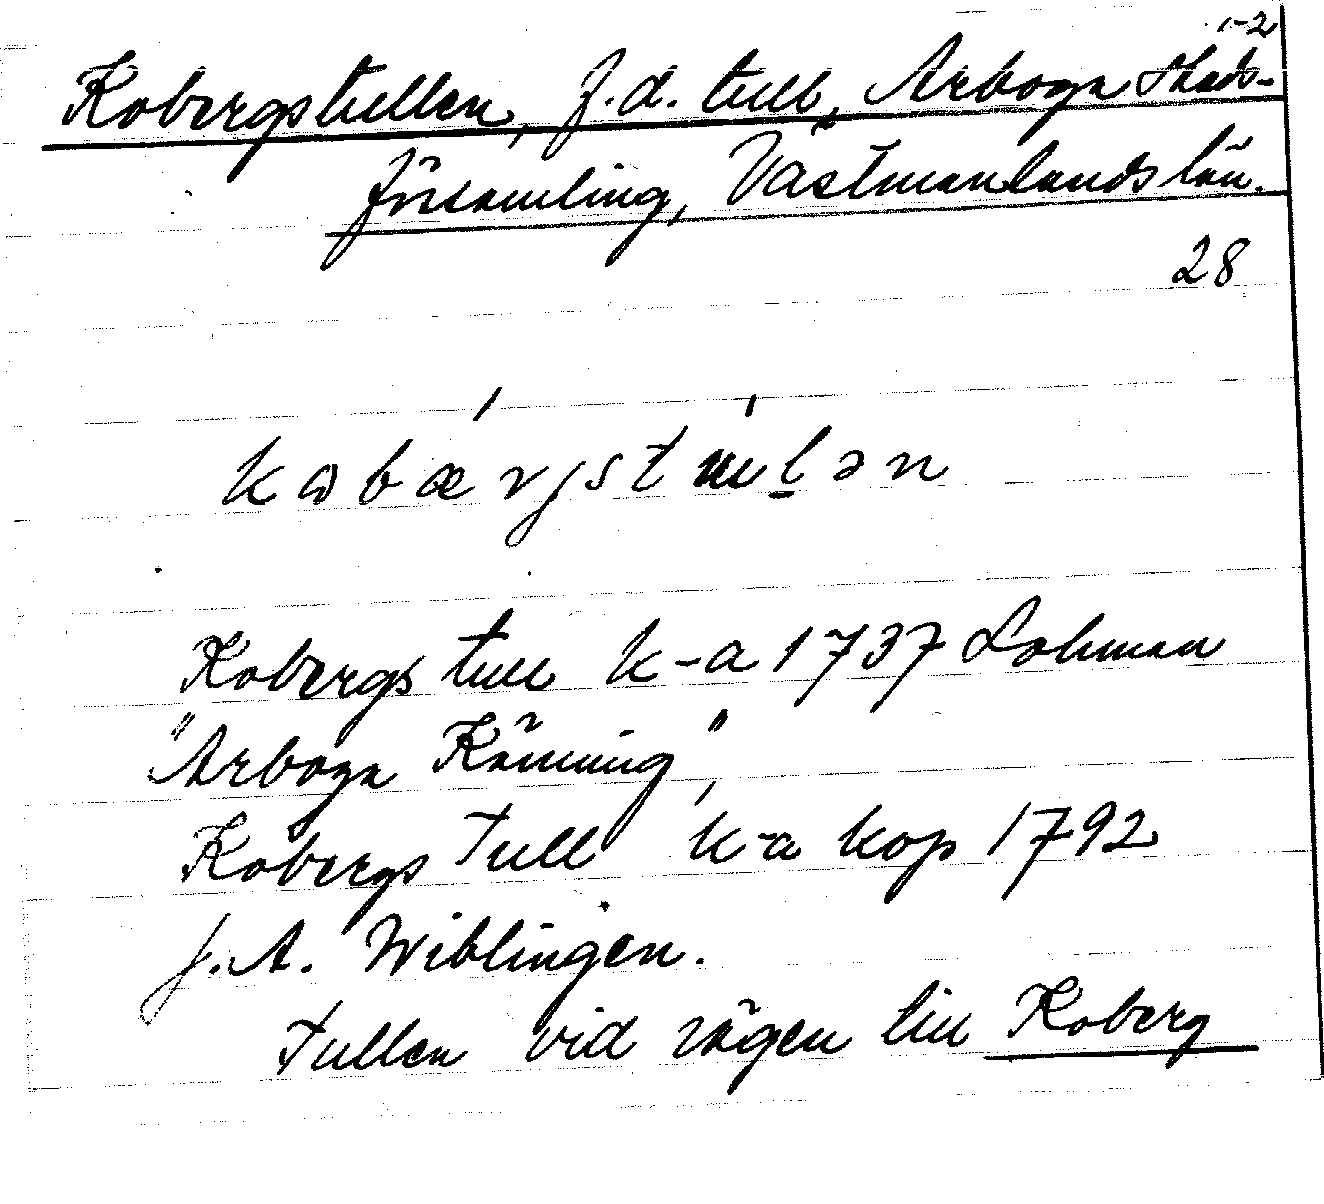 1-2
Kobergstullen, f.d. tull, Arboga Stads-
församling, Västmanlands län.
28
kωbærjstulən
Kobergs tull k-a 1737 Lohman
"Arboga Känning",
Kobergs Tull k-a kop 1792
J.A. Wiblingen.
Tullen vid vägen till Koberg